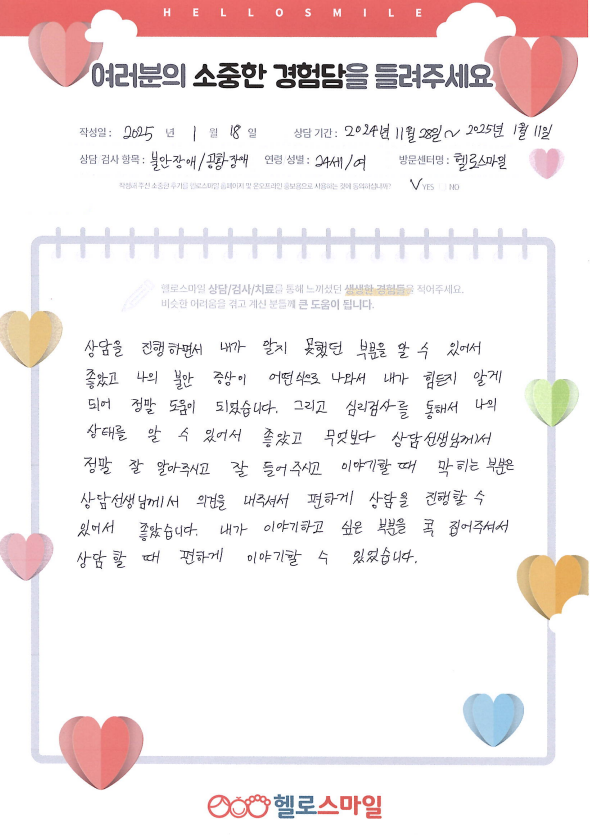 HELLOSMILE
여러분의 소중한 경험담을 들려주세요
작성일 : 2025 년 1 월 18 일 상담 기간 : 2024년 11월 28일 ~ 2025년 1월 11일
상담 검사 항목 : 불안장애/공황장애 연령 성별 : 24세/여 방문센터명 : 헬로스마일
작성해 주신 소중한 후기를 헬로스마일 홈페이지 및 온오프라인 홍보용으로 사용하는 것에 동의하십니까? V YES NO
헬로스마일 상담/검사/치료를 통해 느끼셨던 생생한 경험들을 적어주세요.
비슷한 어려움을 겪고 계신 분들께 큰 도움이 됩니다.
상담을 진행하면서 내가 알지 못했던 부분을 알 수 있어서
좋았고 나의 불안 증상이 어떤식으로 나와서 내가 힘든지 알게
되어 정말 도움이 되었습니다. 그리고 심리검사를 통해서 나의
상태를 알 수 있어서 좋았고 무엇보다 상담선생님께서
정말 잘 알아주시고 잘 들어주시고 이야기할 때 막히는 부분은
상담선생님께서 의견을 내주셔서 편하게 상담을 진행할 수
있어서 좋았습니다. 내가 이야기하고 싶은 부분을 콕 집어주셔서
상담 할 때 편하게 이야기할 수 있었습니다.
헬로스마일